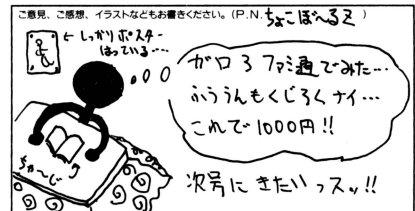 ご意見、ご感想、イラストなどもお書きください。(P.N. ちょこぼ〜るZ )
←しっかりポスター
はっている…
ガロ3 ファミ通でみた…
ふううんもくじろくナイ…
これで1000円!!
ちゃ〜じ
次号にきたいっスッ!!